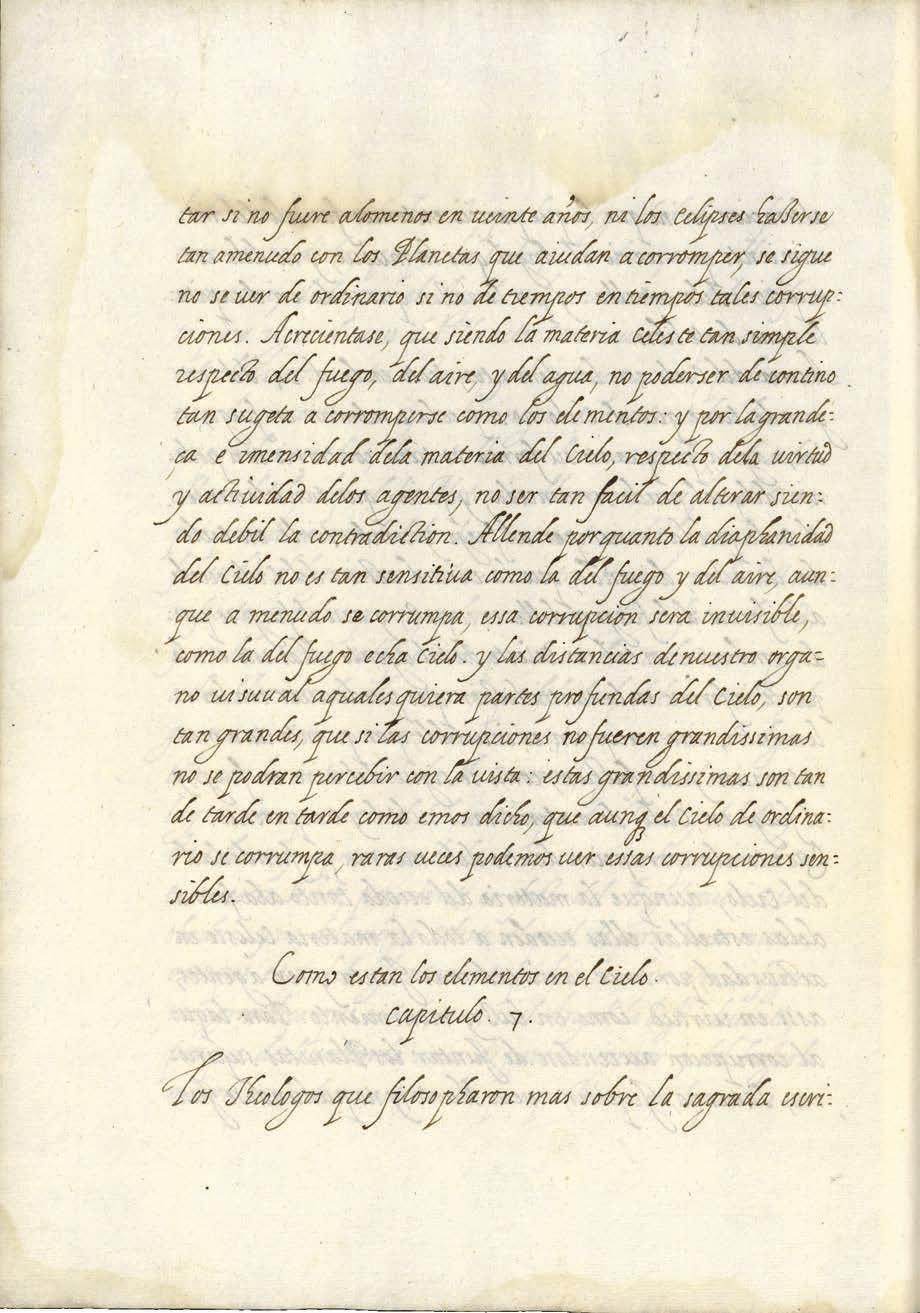 tar si no fuere alomenos en ueinte años, ni los Eclipses haberse
tan amenudo con los Planetas que aiudan a corromper, se sigue
no se ver de ordinario si no de tiempos en tiempos tales corrup:
ciones. Acrecientase, que siendo la materia Celeste tan simple
respecto del fuego, del aire, y del agua, no poder ser de contino
tan sugeta a corromperse como los elementos: y por la grande:
ça e imensidad dela materia del Cielo, respecto dela uirtud
y actiuidad delos agentes, no ser tan facil de alterar sien:
do debil la contradiction. Allende porquanto la diaphanidad
del Cielo no es tan sensitiua como la del fuego y del aire, aun:
que a menudo se corrumpa, essa corrupcion sera inuisible,
como la del fuego echa Cielo. y las distancias de nuestro orga=
no uisuual a quales quiera partes profundas del Cielo, son
tan grandes, que si las corrupciones no fueren grandissimas
no se podran percebir con la vista: estas grandissimas son tan
de tarde en tarde como emos dicho, que aunq el Cielo de ordina:
rio se corrumpa, raras ueces podemos uer essas corrupciones sen:
sibles.
Como estan los elementos en el Cielo.
Capitulo. 7.
Los Theologos que filosopharon mas sobre la sagrada escri: